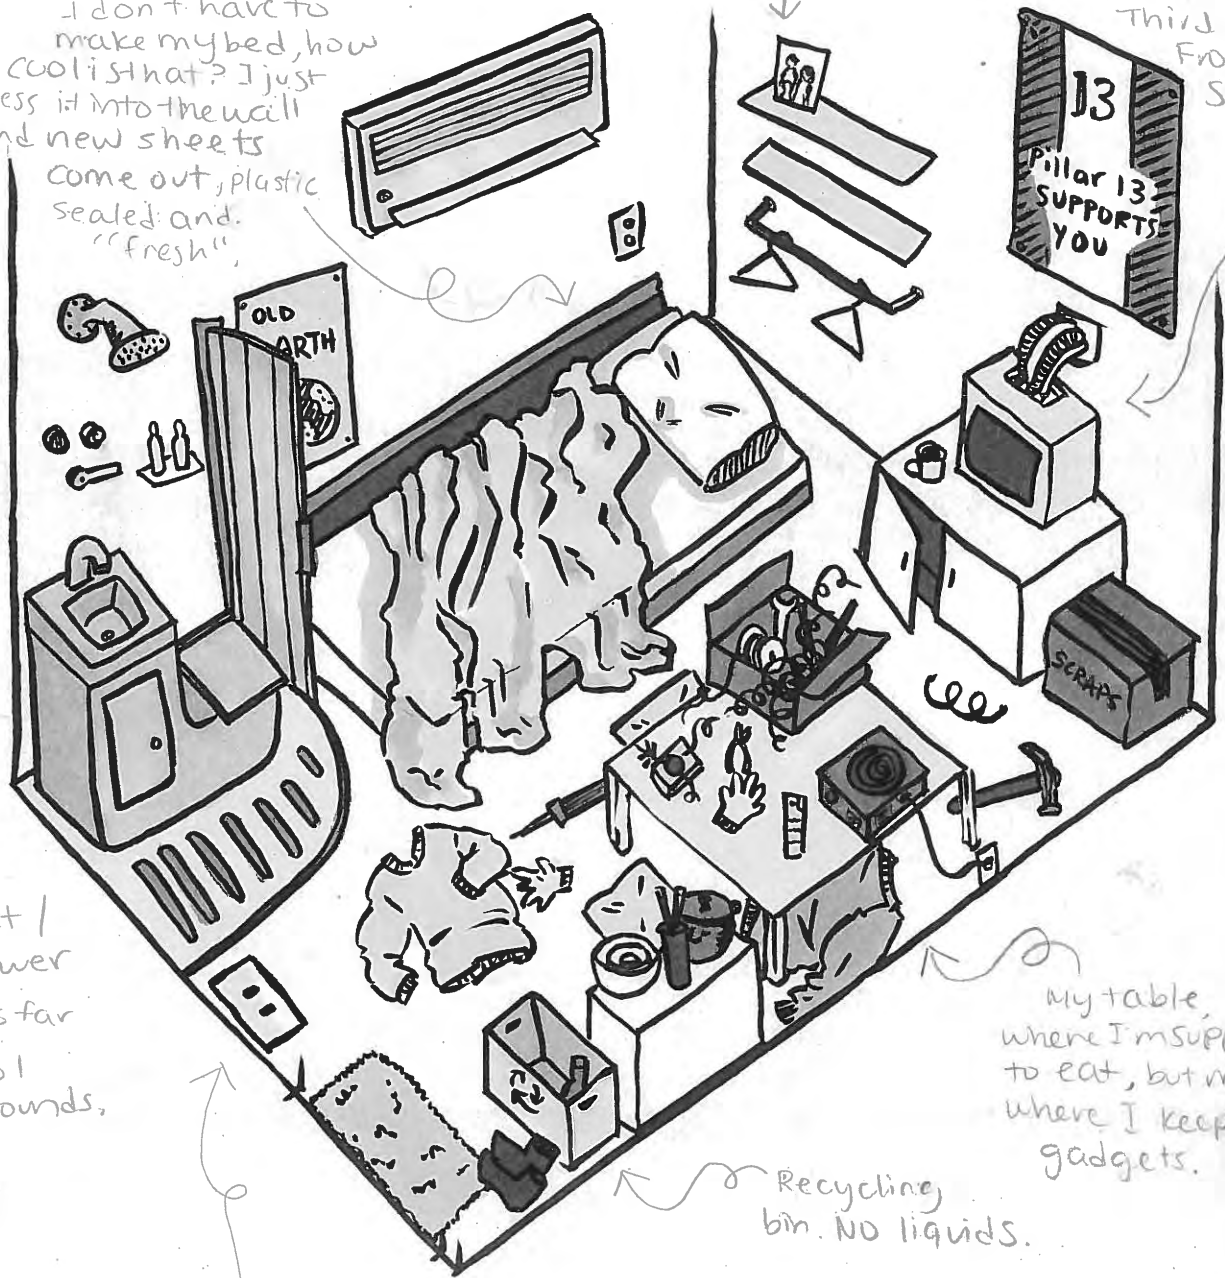 I don't have to
make my bed, how
cool is that? I just
ess it into the wall
nd new sheets
come out, plastic
sealed and
"fresh".
Third
Fro
S
13
Pillar 13
SUPPORTS
YOU
OLD
ARTH
SCRAPS
t /
wer
s far
ol
ounds.
My table,
where I'm supp
to eat, but m
where I keep
gadgets.
Recycling
bin. NO liquids.